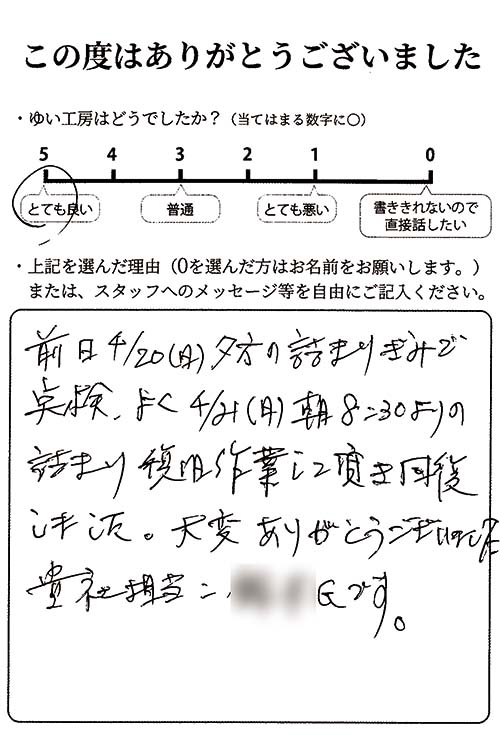 この度はありがとうございました
・ゆい工房はどうでしたか？（当てはまる数字に〇）
5 4 3 2 1 0
とても良い 普通 とても悪い 書ききれないので
直接話したい
・上記を選んだ理由（0を選んだ方はお名前をお願いします。）
または、スタッフへのメッセージ等を自由にご記入ください。
前日4/20(日)夕方の詰まりぎみで
実験、よく4/21(月)朝8:30よりの
詰まり復旧作業して頂き回復
しました。大変ありがとうございました
貴社担当 Gです。